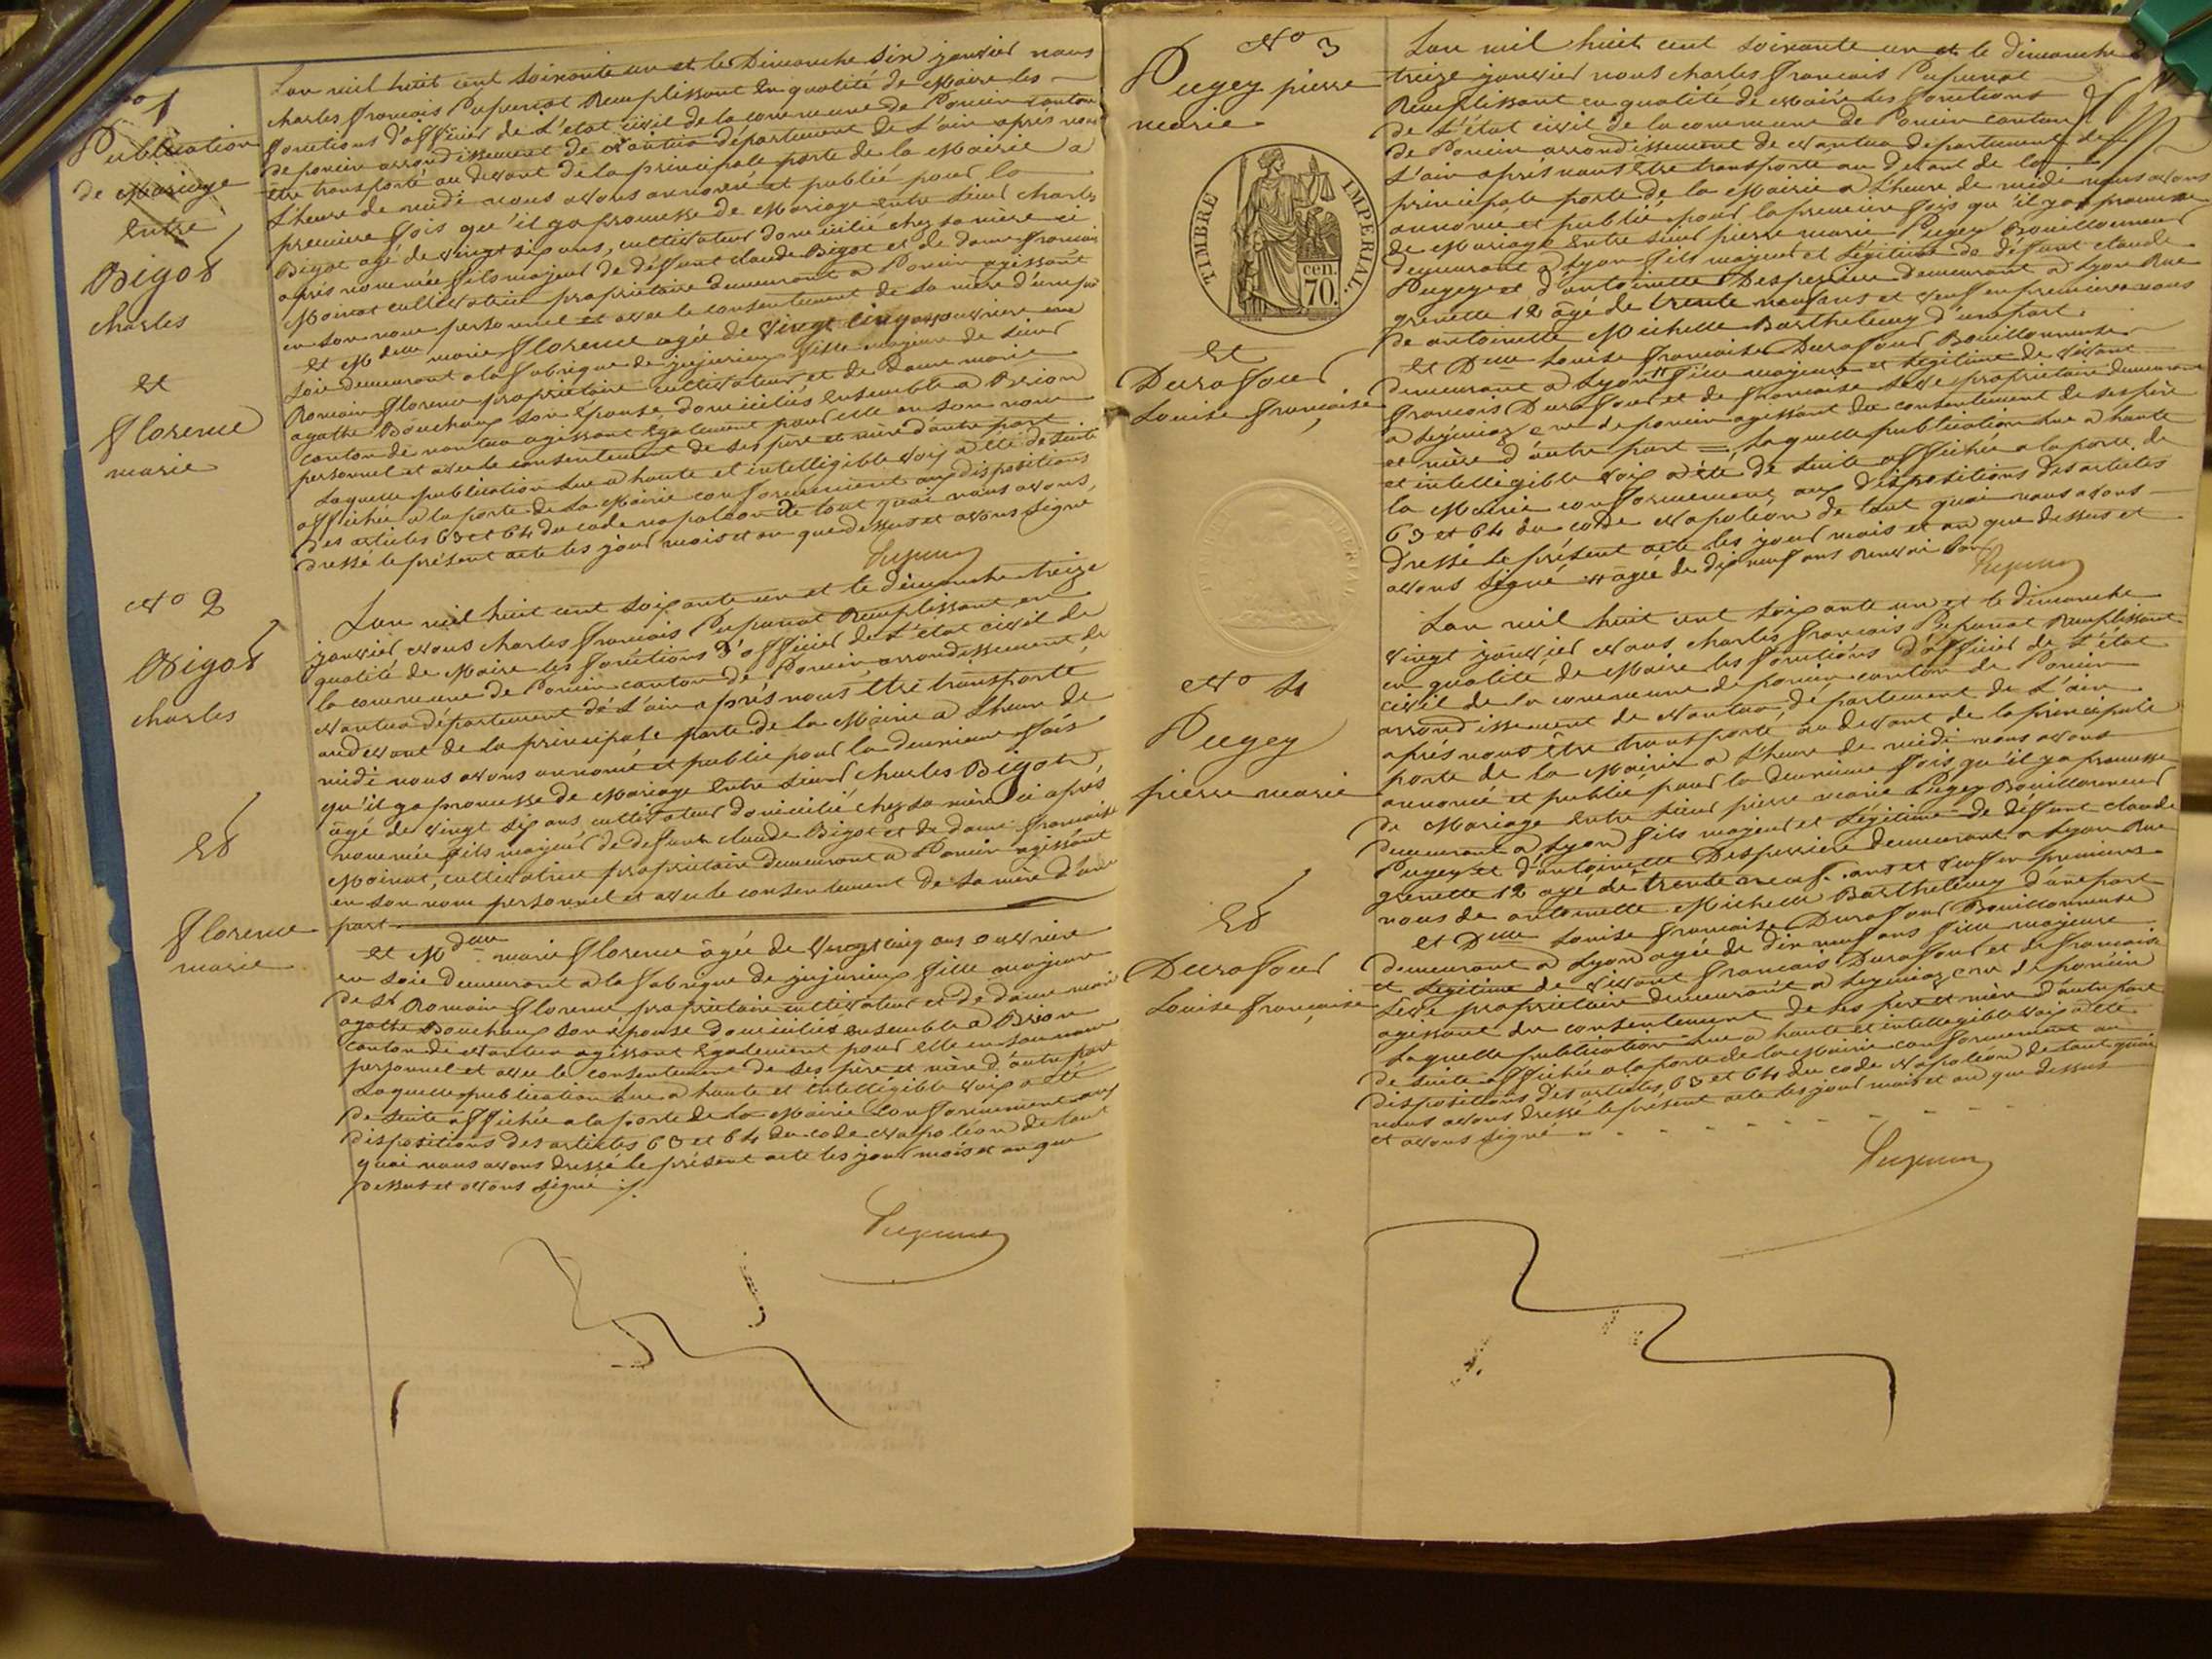 No 1
Publication
de Mariage
Entre
Bigot
charles
et
Florence
marie
Lan mil huit cent soixante un et le Dimanche six janvier nous
charles francois Pupunat Remplissant En qualité de Maire les
fonctions d'officier de L'etat civil de la commune de Poncin canton
de poncin arrondissement de Nantua département de L'ain après nous
être transporté au devant de la principale porte de la Mairie a
L'heure de midi nous avons annoncé et publié pour la
premiere fois qu'il ya promesse de Mariage Entre sieur charles
Bigot agé de vingt six ans, cultivateur domicilié chez sa mère ci
après nommée fils majeur de deffunt claude Bigot et de dame francoise
Moinat cultivatrice propriétaire demeurant a Poncin agissant
en son nom personnel et avec le consentement de sa mère d'une part
et Mdelle marie Florence agée de vingt cinq ans ouvrière en
soie demeurant a la fabrique de jujurieux fille majeure de sieur
Romain Florence propriétaire cultivateur et de Dame marie
agathe Bouchoux son épouse domiciliés Ensemble a Brion
canton de nantua agissant Egalement pour elle en son nom
personnel et avec le consentement de ses père et mère d'autre part
Laquelle publication Lue a haute et intelligible voix a été de suite
affichée a la porte de la Mairie conformément aux dispositions
des articles 63 et 64 du code napoléon de tout quoi nous avons
dressé le présent acte les jour mois et an que dessus et avons signé
Pupunat
No 2
Bigot
charles
Et
Florence
marie
Lan mil huit cent soixante un et le dimanche treize
janvier Nous charles francois Pupunat Remplissant en
qualité de Maire les fonctions d'officier de L'état civil de
la commune de Poncin canton de Poncin arrondissement de
Nantua département de L'ain après nous Etre transporté
au devant de la principale porte de la Mairie a L'heure de
midi nous avons annoncé et publié pour la deuxieme fois
qu'il ya promesse de Mariage Entre sieur charles Bigot,
âgé de vingt six ans cultivateur domicilié chez sa mère ci après
nommée fils majeur de deffunt claude Bigot et de dame francoise
Moinat, cultivatrice propriétaire demeurant a Poncin agissant
en son nom personnel et avec le consentement de sa mère d'une
part
et Mdelle marie Florence âgée de vingt cinq ans ouvrière
en soie demeurant a la fabrique de jujurieux fille majeure
de sr Romain Florence propriétaire cultivateur et de dame marie
agathe Bouchoux son épouse domiciliés ensemble a Brion
canton de Nantua agissant Egalement pour elle en son nom
personnel et avec le consentement de ses père et mère d'autre part
Laquelle publication Lue a haute et intelligible voix a été
de suite affichée a la porte de la Mairie conformément aux
dispositions des articles 63 et 64 du code Napoléon de tout
quoi nous avons dressé le présent acte les jour mois et an que
dessus et avons signé
Pupunat
No 3
Pugey pierre
marie
TIMBRE IMPERIAL
70 cen.
Et
Duraffour
Louise françoise
Lan mil huit cent soixante un et le dimanche
treize janvier nous charles francois Pupunat
Remplissant en qualité de Maire les fonctions
de L'état civil de la commune de Poncin canton
de Poncin arrondissement de Nantua département de
L'ain après nous être transporté au devant de la
principale porte de la Mairie a L'heure de midi nous avons
annoncé et publié pour la premiere fois qu'il ya promesse
de Mariage Entre sieur pierre marie Pugey
demeurant a Lyon fils majeur et Légitime de deffunt claude
Pugey et d'antoinette Desperrier demeurant a Lyon Rue
grenette 12 âgé de trente neuf ans et veuf en premieres nous
de antoinette Michelle Barthelemy d'une part.
et Delle Louise francoise Duraffour
demeurant a Lyon fille majeure et Légitime de vivant
francois Duraffour et de francoise propriétaire demeurant
a Leymiaz cne de poncin agissant du consentement de ses père
et mère d'autre part Laquelle publication Lue a haute
et intelligible voix a été de suite affichée a la porte de
la Mairie conformément aux dispositions des articles
63 et 64 du code Napoléon de tout quoi nous avons
dressé le présent acte les jour mois et an que dessus et
avons signé agée de dix neuf ans Renvoi
Pupunat
No 4
Pugey
pierre marie
Et
Duraffour
Louise françoise
Lan mil huit cent soixante un et le dimanche
vingt janvier Nous charles francois Pupunat Remplissant
en qualité de Maire les fonctions d'officier de L'état
civil de la commune de poncin canton de Poncin
arrondissement de Nantua, département de L'ain
après nous être transporté au devant de la principale
porte de la Mairie a L'heure de midi nous avons
annoncé et publié pour la deuxieme fois qu'il ya promesse
de Mariage Entre sieur pierre marie Pugey
demeurant a Lyon fils majeur et Légitime de deffunt claude
Pugey et d'antoinette Desperrier demeurant a Lyon Rue
grenette 12 agé de trente neuf ans et veuf en premieres
nous de antoinette Michelle Barthelemy d'une part
et Delle Louise francoise Duraffour
demeurant a Lyon agée de dix neuf ans fille majeure
et Légitime de vivant francois Duraffour et de francoise
propriétaire demeurant a Leymiaz cne de poncin
agissant du consentement de ses père et mère d'autre part
Laquelle publication Lue a haute et intelligible voix a été
de suite affichée a la porte de la Mairie conformément au
dispositions des articles 63 et 64 du code Napoléon de tout quoi
nous avons dressé le présent acte les jour mois et an que dessus
et avons signé
Pupunat